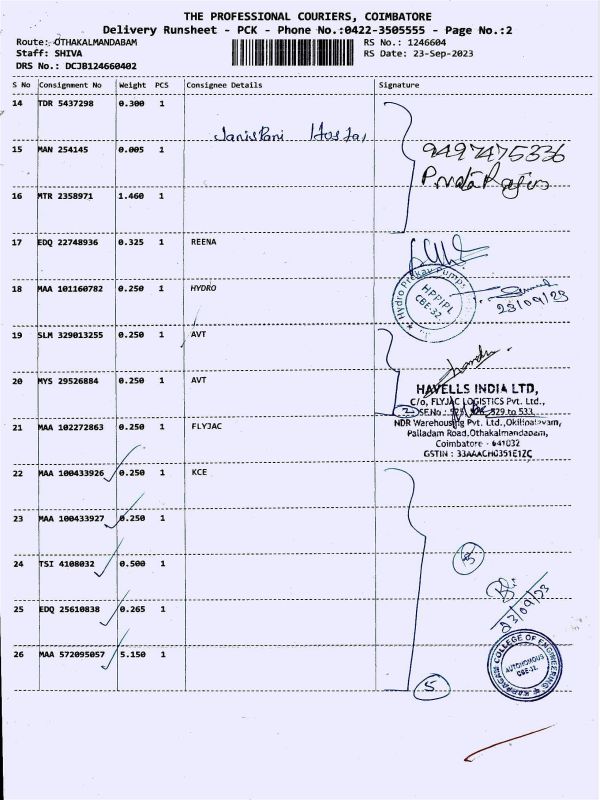 THE PROFESSIONAL COURIERS, COIMBATORE
Delivery Runsheet - PCK - Phone No.:0422-3505555 - Page No.:2
Route: OTHAKALMANDABAM
RS No.: 1246604
Staff: SHIVA
RS Date: 23-Sep-2023
DRS No.: DCJB124660402
S No Consignment No Weight PCS Consignee Details Signature
14 TDR 5437298 0.300 1
15 MAN 254145 0.005 1
9497475336
16 MTR 2358971 1.460 1
17 EDQ 22748936 0.325 1 REENA
18 MAA 101160782 0.250 1 HYDRO
Hydro Prokav Pumps
HPPIPL
CBE-32
23/09/23
19 SLM 329013255 0.250 1 AVT
20 MYS 29526884 0.250 1 AVT
2
HAVELLS INDIA LTD,
C/o, FLYJAC LOGISTICS Pvt. Ltd.,
SF.No.: 529 to 533,
NDR Warehousing Pvt. Ltd.,
Palladam Road, Othakalmandapam,
Coimbatore - 641032
GSTIN : 33AAACH0351E1ZC
21 MAA 102272863 0.250 1 FLYJAC
22 MAA 100433926 0.250 1 KCE
23 MAA 100433927 0.250 1
24 TSI 4108032 0.500 1
25 EDQ 25610838 0.265 1
23/09/23
26 MAA 572095057 5.150 1
KARPAGAM COLLEGE OF ENGINEERING
AUTONOMOUS
CBE-32.
5